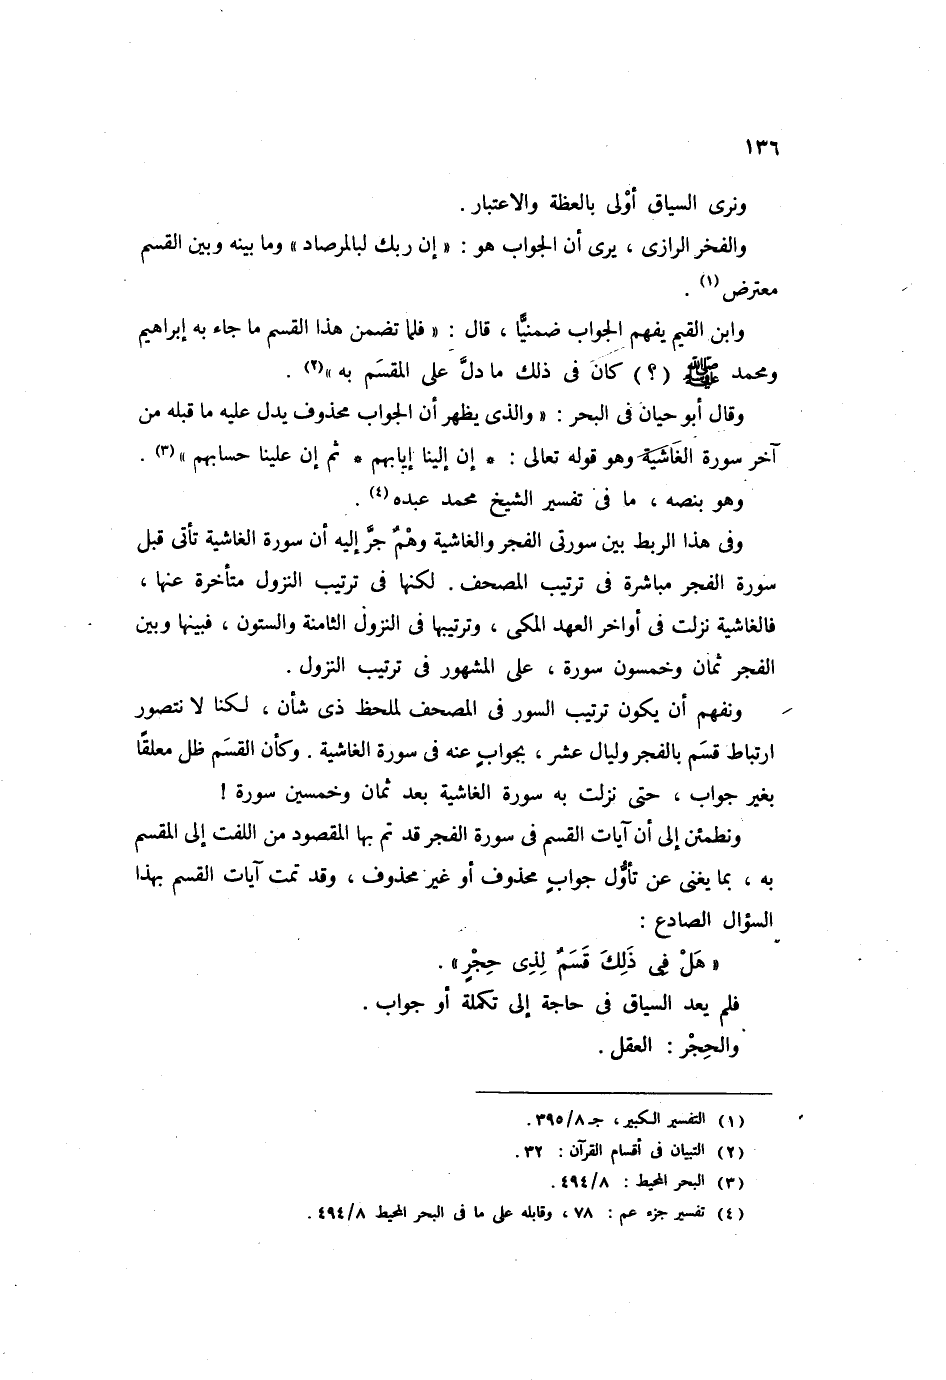 ١٣٦
ونرى السياق أوْلى بالعظة والاعتبار .
والفخر الرازى ، يرى أن الجواب هو : « إن ربك لبالمرصاد » وما بينه وبين القسم
معترض (١) .
وابن القيم يفهم الجواب ضمنيًّا ، قال : « فلما تضمن هذا القسم ما جاء به إبراهيم
ومحمد ﷺ (؟) كان فى ذلك ما دلَّ على المقسَم به »(٢) .
وقال أبو حيان فى البحر : « والذى يظهر أن الجواب محذوف يدل عليه ما قبله من
آخر سورة الغَاشية وهو قوله تعالى : * إن إلينا إيابهم * ثم إن علينا حسابهم »(٣) .
وهو بنصه ، ما فى تفسير الشيخ محمد عبده(٤) .
وفى هذا الربط بين سورتى الفجر والغاشية وهْمٌ جرَّ إليه أن سورة الغاشية تأتى قبل
سورة الفجر مباشرة فى ترتيب المصحف . لكنها فى ترتيب النزول متأخرة عنها ،
فالغاشية نزلت فى أواخر العهد المكى ، وترتيبها فى النزول الثامنة والستون ، فبينها وبين
الفجر ثمان وخمسون سورة ، على المشهور فى ترتيب النزول .
ونفهم أن يكون ترتيب السور فى المصحف لملحظ ذى شأن ، لكنا لا نتصور
ارتباط قسَم بالفجر وليال عشر ، بجوابٍ عنه فى سورة الغاشية . وكأن القسَم ظل معلقًا
بغير جواب ، حتى نزلت به سورة الغاشية بعد ثمان وخمسين سورة !
ونطمئن إلى أن آيات القسم فى سورة الفجر قد تم بها المقصود من اللفت إلى المقسم
به ، بما يغنى عن تأوُّل جوابٍ محذوف أو غير محذوف ، وقد تمت آيات القسم بهذا
السؤال الصادع :
« هَلْ فِى ذَلِكَ قَسَمٌ لِذِى حِجْرٍ» .
فلم يعد السياق فى حاجة إلى تكملة أو جواب .
والحِجْر : العقل .
(١) التفسير الكبير ، جـ ٣٩٥/٨ .
(٢) التبيان فى أقسام القرآن : ٣٢ .
(٣) البحر المحيط : ٤٩٤/٨ .
(٤) تفسير جزء عم : ٧٨ ، وقابله على ما فى البحر المحيط ٤٩٤/٨ .